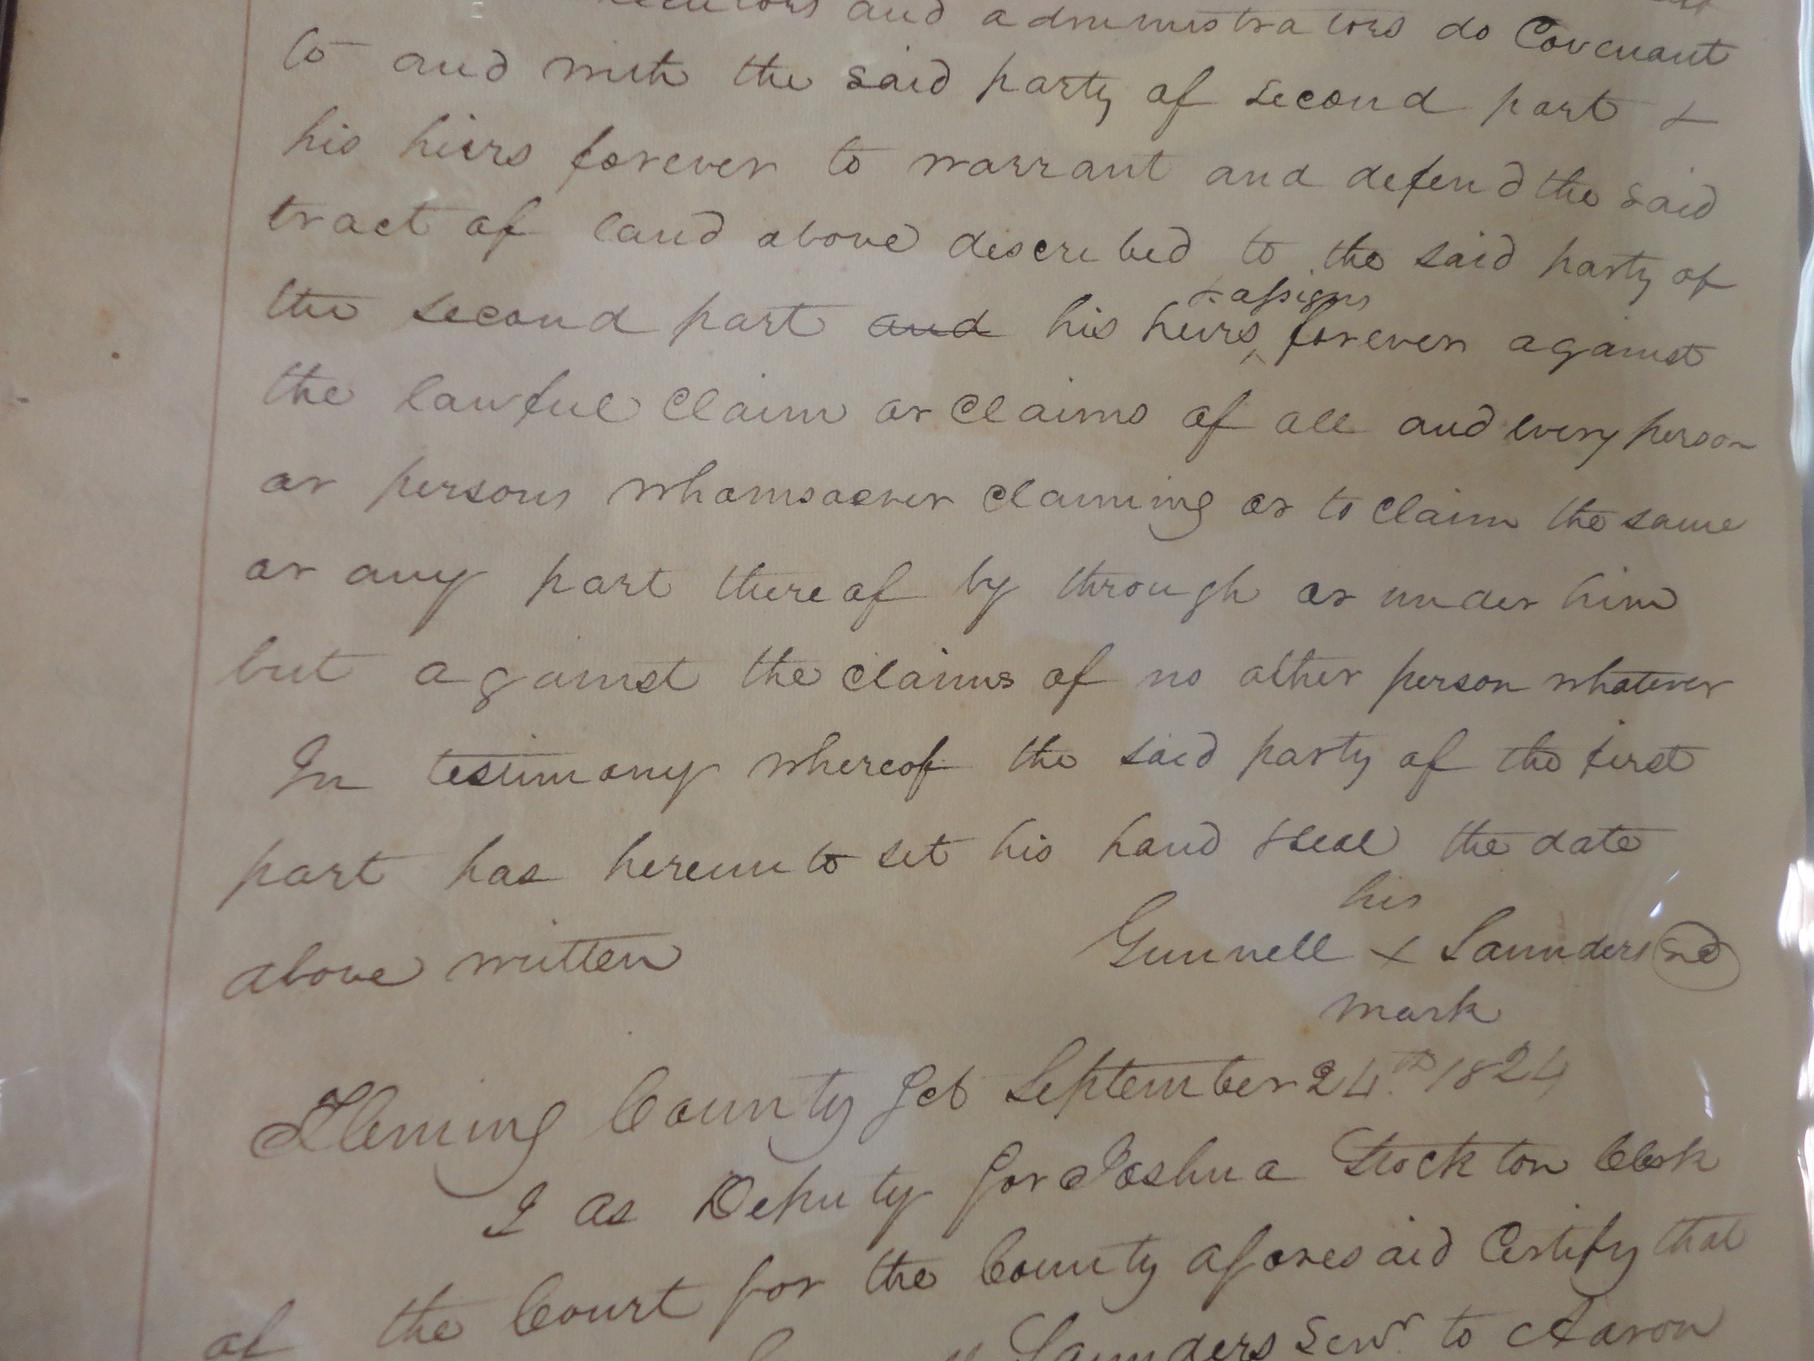 and administrators do Covenant
to and with the said party of second part &
his hiers forever to warrant and defend the said
tract of land above described to the said party of
& assigns
the second part and his heirs forever against
the lawful claim or claims of all and every person
or persons whomsoever claiming or to claim the same
or any part thereof by through or under him
but against the claims of no other person whatever
In testimony whereof the said party of the first
part has hereunto set his hand & seal the date
his
above written Gunnell x Saunders
mark
Fleming County Sct September 24th 1824
I as Deputy for Joshua Stockton Clerk
of the Court for the County aforesaid Certify that
Saunders Senr to Aaron